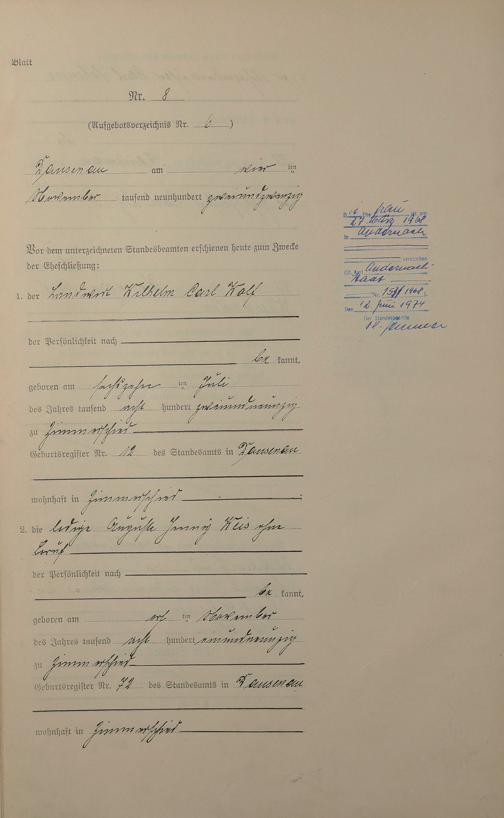 Blatt
Nr. 8
(Aufgebotsverzeichnis Nr. 6)
Dausenau am vier ten
November tausend neunhundert zweiundzwanzig
Vor dem unterzeichneten Standesbeamten erschienen heute zum Zwecke
der Eheschließung:
1. der Landwirt Wilhelm Carl Wolf
der Persönlichkeit nach
be kannt,
geboren am sechszehn ten Juli
des Jahres tausend acht hundert zweiundneunzig
zu Zimmerschied
Geburtsregister Nr. 12 des Standesamts in Dausenau
wohnhaft in Zimmerschied
2. die ledige Auguste Jenny Weis ohne
Beruf
der Persönlichkeit nach
be kannt,
geboren am elf ten November
des Jahres tausend acht hundert einundneunzig
zu Zimmerschied
Geburtsregister Nr. 72 des Standesamts in Dausenau
wohnhaft in Zimmerschied
Frau
27. März 1968
in Andernach
verstorben
Andernach
Nr. 1968
12. Juni 1974
Der Standesbeamte